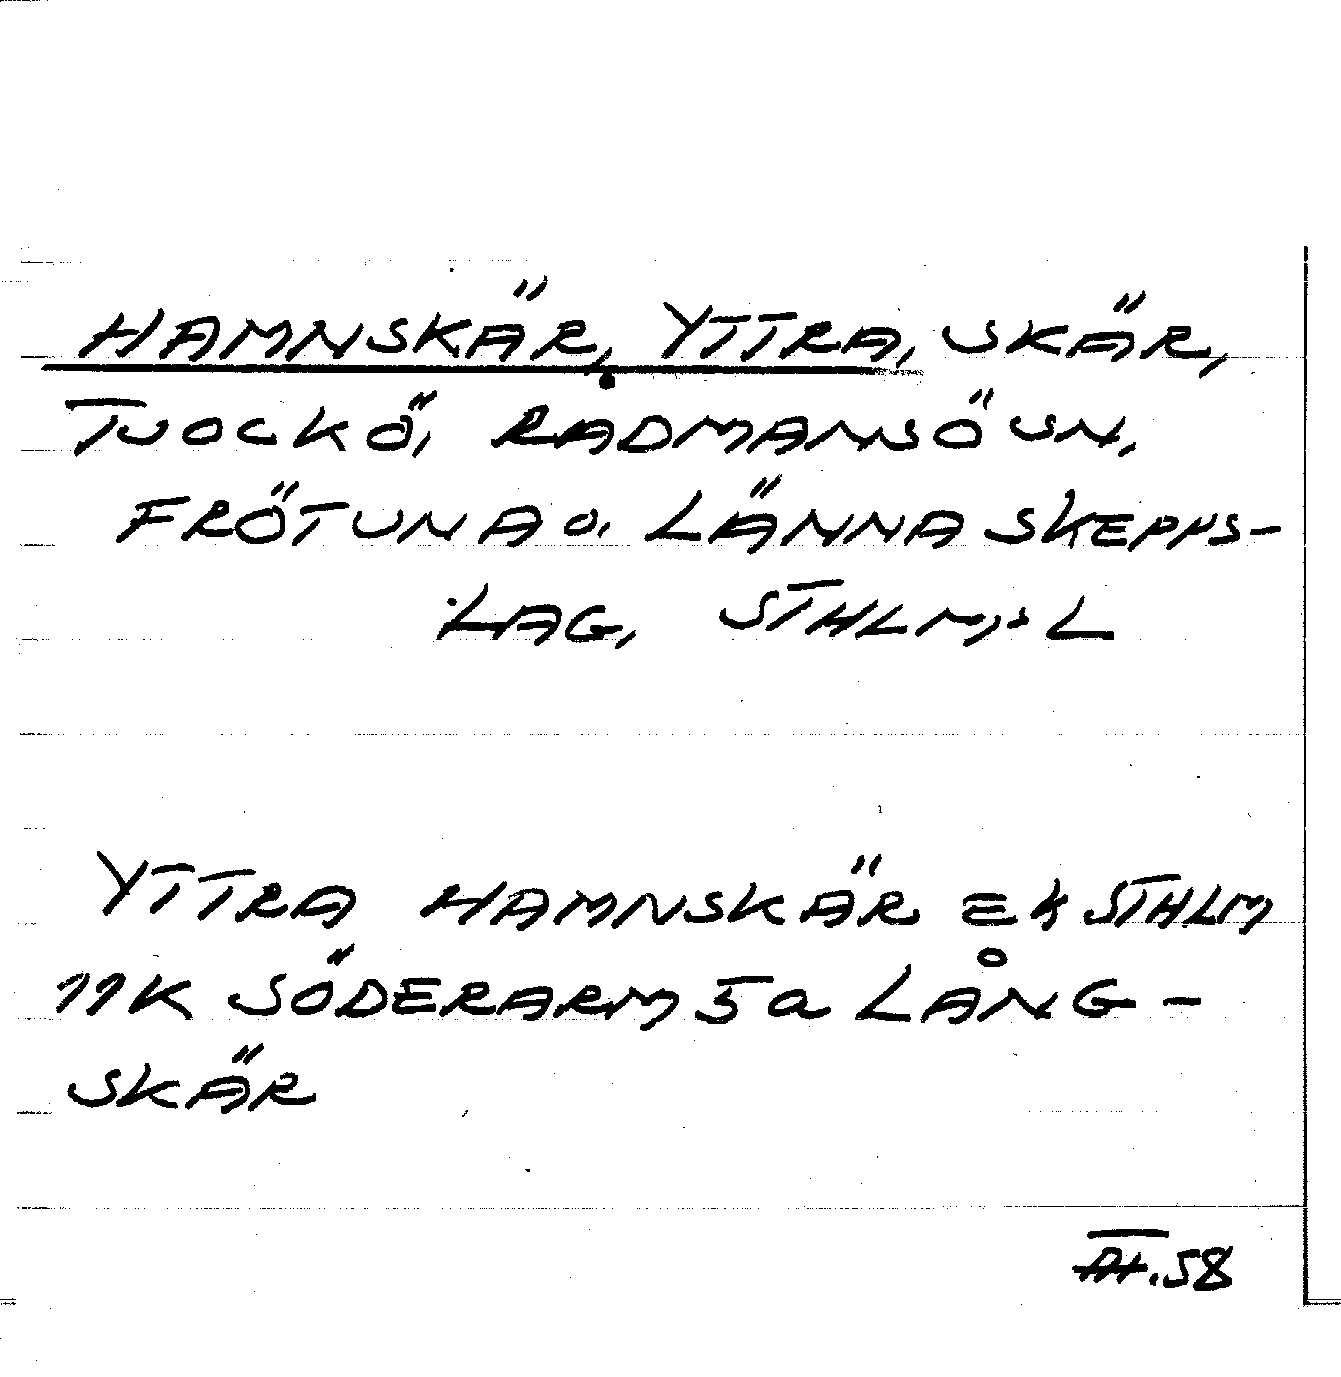 HAMNSKÄR, YTTRA, SKÄR,
TJOCKÖ, RÅDMANSÖ SN,
FRÖTUNA O. LÄNNA SKEPPS-
LAG, STHLM:S L
YTTRA HAMNSKÄR EK STHLM
11K SÖDERARM 5a LÅNG-
SKÄR
58